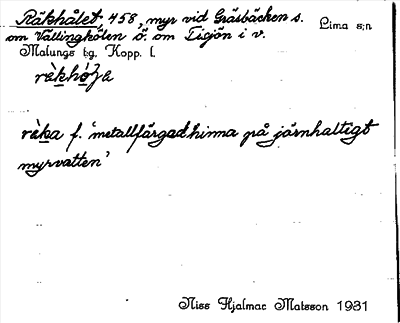 Räkhålet, 458, myr vid Gräsbäcken s.
Lima s:n
om Vällingkölen ö. om Tisjön i v.
Malungs tg, Kopp. l.
räka f. 'metallfärgad hinna på järnhaltigt
myrvatten'
Niss Hjalmar Matsson 1931